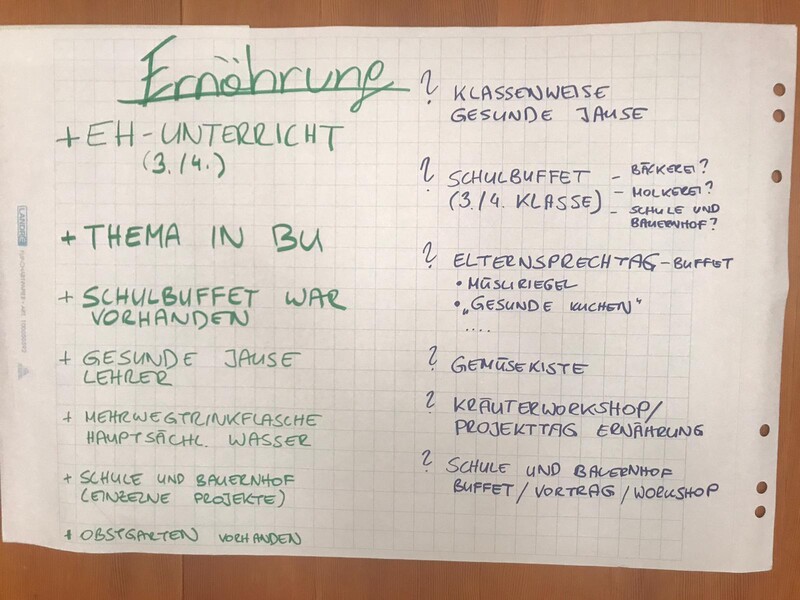 Ernährung
+ EH-UNTERRICHT
(3./4.)
+ THEMA IN BU
+ SCHULBUFFET WAR
VORHANDEN
+ GESUNDE JAUSE
LEHRER
+ MEHRWEGTRINKFLASCHE
HAUPTSÄCHL. WASSER
+ SCHULE UND BAUERNHOF
(EINZELNE PROJEKTE)
+ OBSTGARTEN VORHANDEN
? KLASSENWEISE
GESUNDE JAUSE
? SCHULBUFFET – BÄCKEREI?
(3./4. KLASSE) – MOLKEREI?
– SCHULE UND
BAUERNHOF?
? ELTERNSPRECHTAG-BUFFET
• MÜSLIRIEGEL
• „GESUNDE KUCHEN"
....
? GEMÜSEKISTE
? KRÄUTERWORKSHOP/
PROJEKTTAG ERNÄHRUNG
? SCHULE UND BAUERNHOF
BUFFET/VORTRAG/WORKSHOP
LANDRÉ